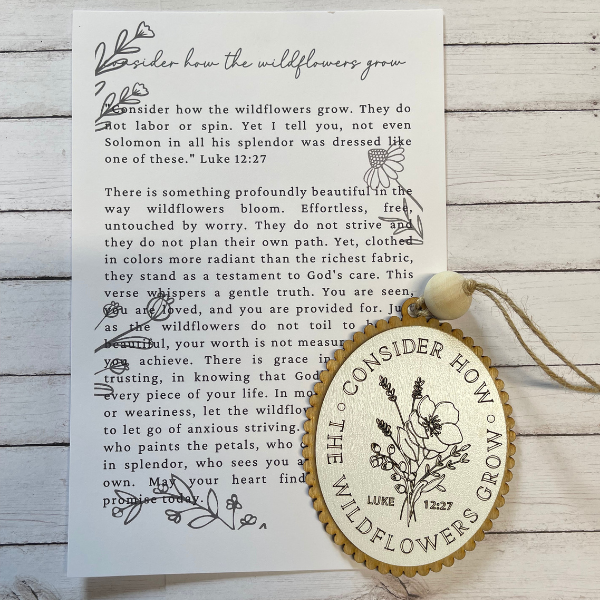 Consider how the wildflowers grow
"Consider how the wildflowers grow. They do
not labor or spin. Yet I tell you, not even
Solomon in all his splendor was dressed like
one of these." Luke 12:27
There is something profoundly beautiful in the
way wildflowers bloom. Effortless, free,
untouched by worry. They do not strive and
they do not plan their own path. Yet, clothed
in colors more radiant than the richest fabric,
they stand as a testament to God's care. This
verse whispers a gentle truth. You are seen,
you are loved, and you are provided for.
as the wildflowers do not toil to
beautiful, your worth is not
you achieve. There is grace in
trusting, in knowing that God
every piece of your life. In
or weariness, let the
to let go of anxious striving.
who paints the petals, who
in splendor, who sees you
own. May your heart find
promise today.
CONSIDER HOW
THE WILDFLOWERS GROW
LUKE 12:27